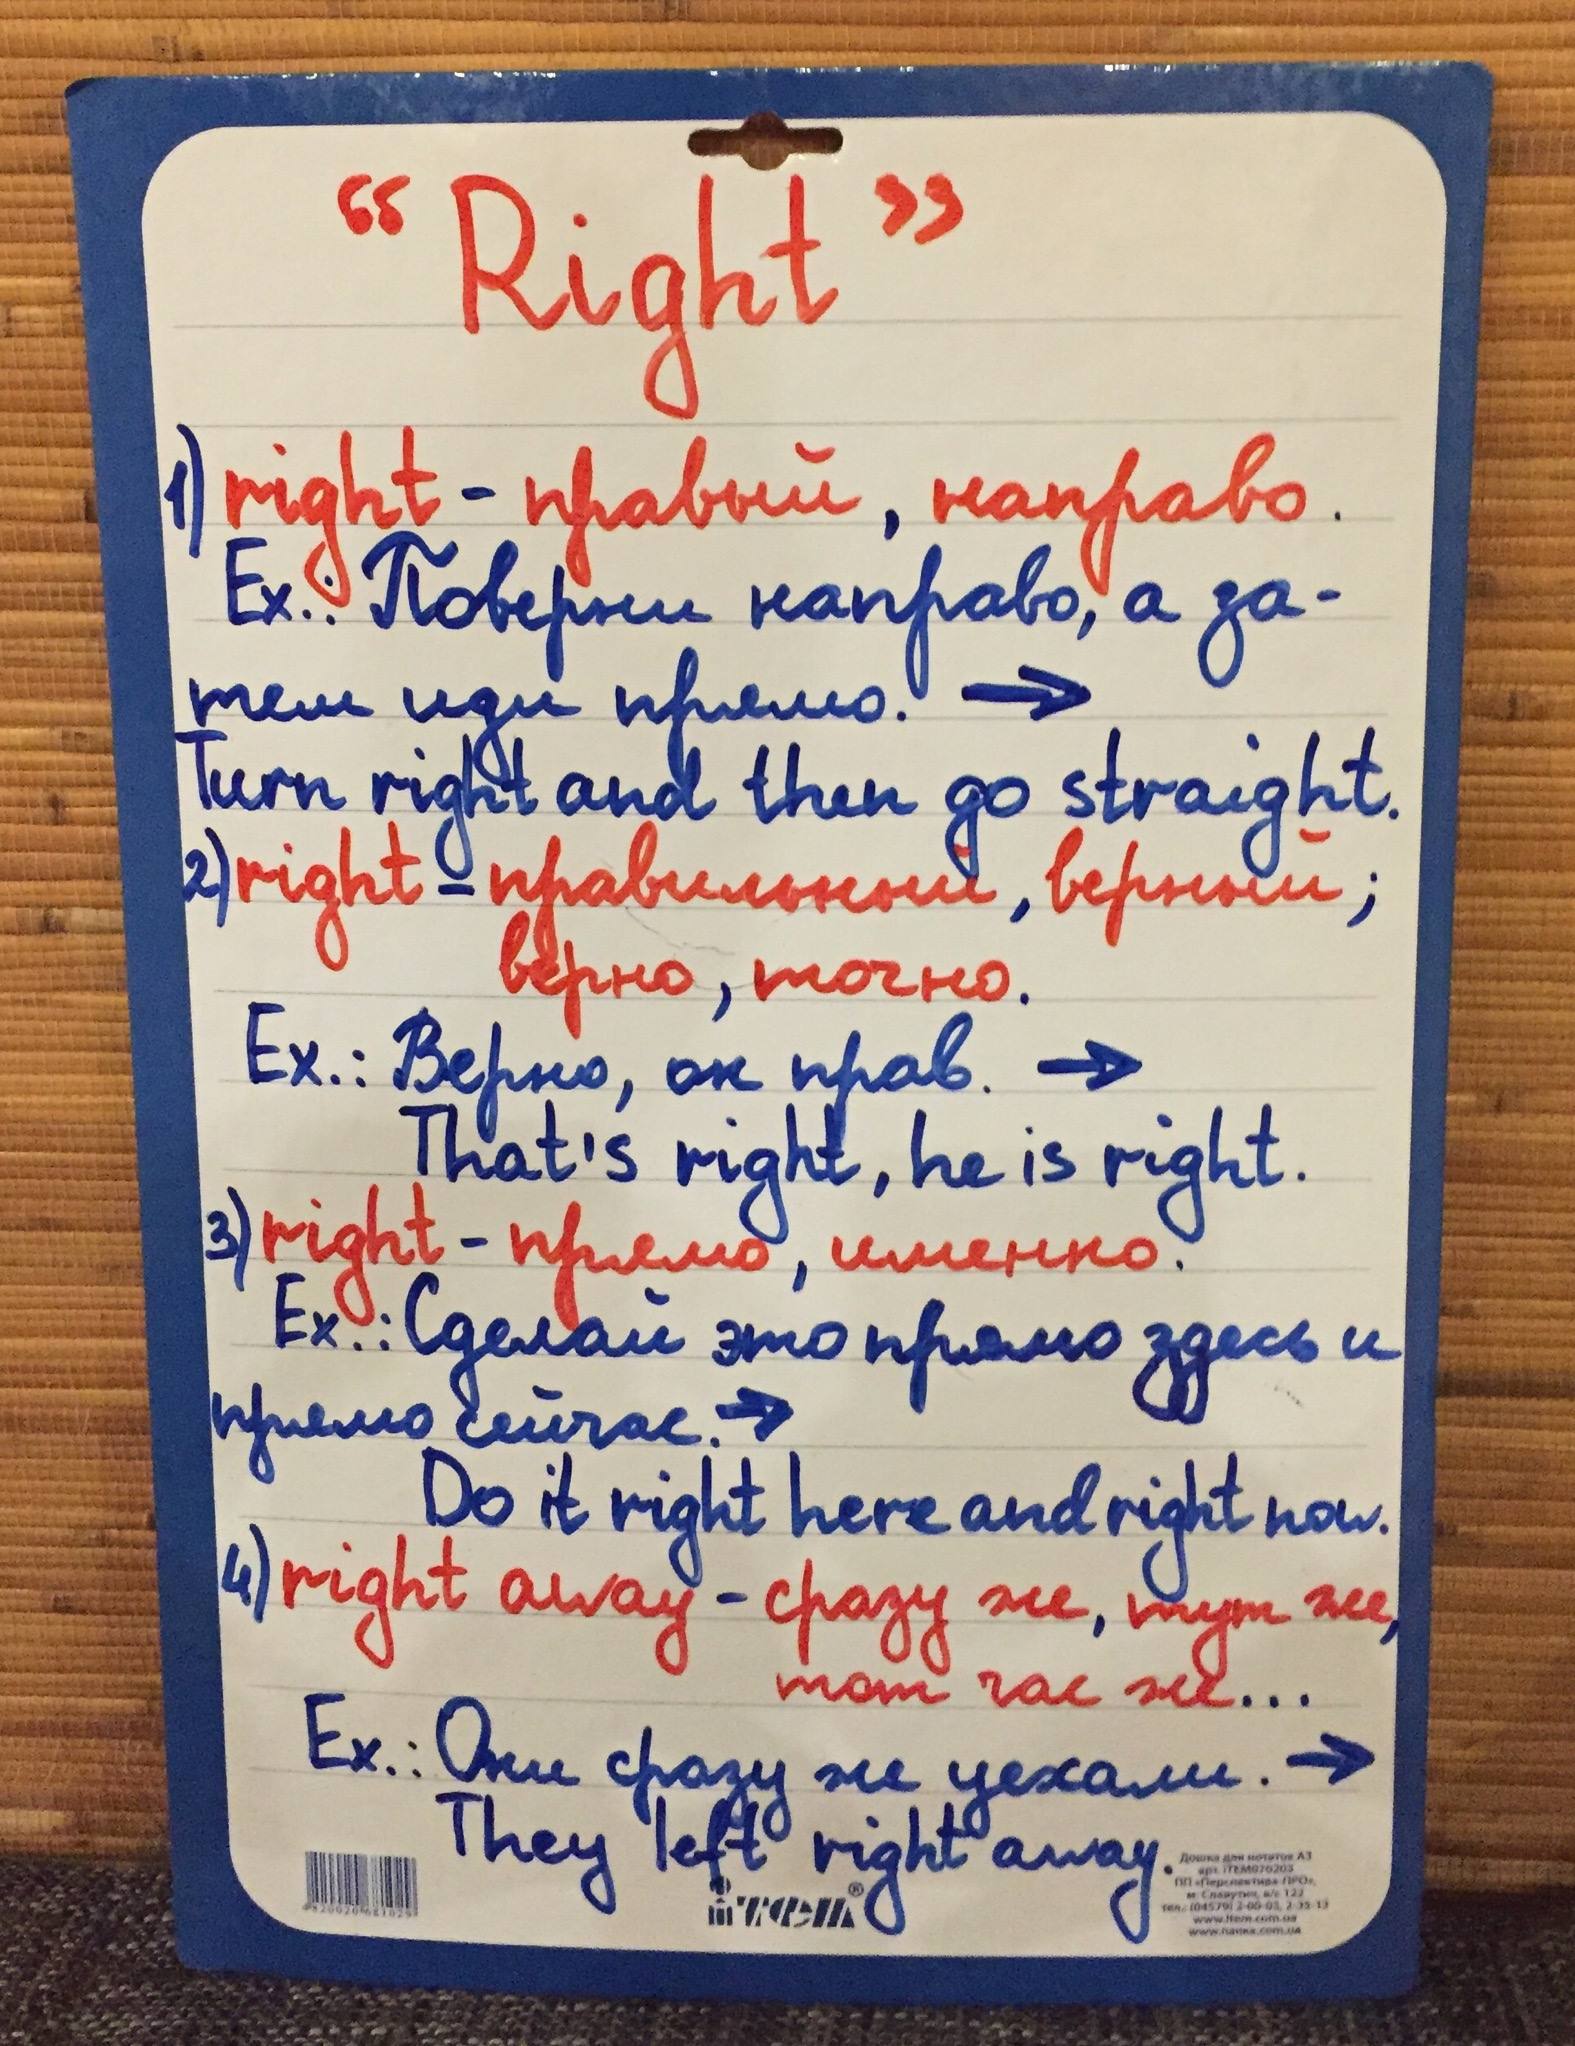 “Right”
1) right - правый, направо.
Ex.: Поверни направо, а за-
тем иди прямо. →
Turn right and then go straight.
2) right - правильный, верный;
верно, точно.
Ex.: Верно, он прав. →
That's right, he is right.
3) right - прямо, именно.
Ex.: Сделай это прямо здесь и
прямо сейчас. →
Do it right here and right now.
4) right away - сразу же, тут же,
тот час же...
Ex.: Они сразу же уехали. →
They left right away.
Дошка для нотаток А3
арт. ITEM076203
ПП «Перспектива-ПРО»,
м. Славутич, а/с 122
тел.: (04579) 2-00-03, 2-35-13
www.item.com.ua
www.папка.com.ua
iтем®